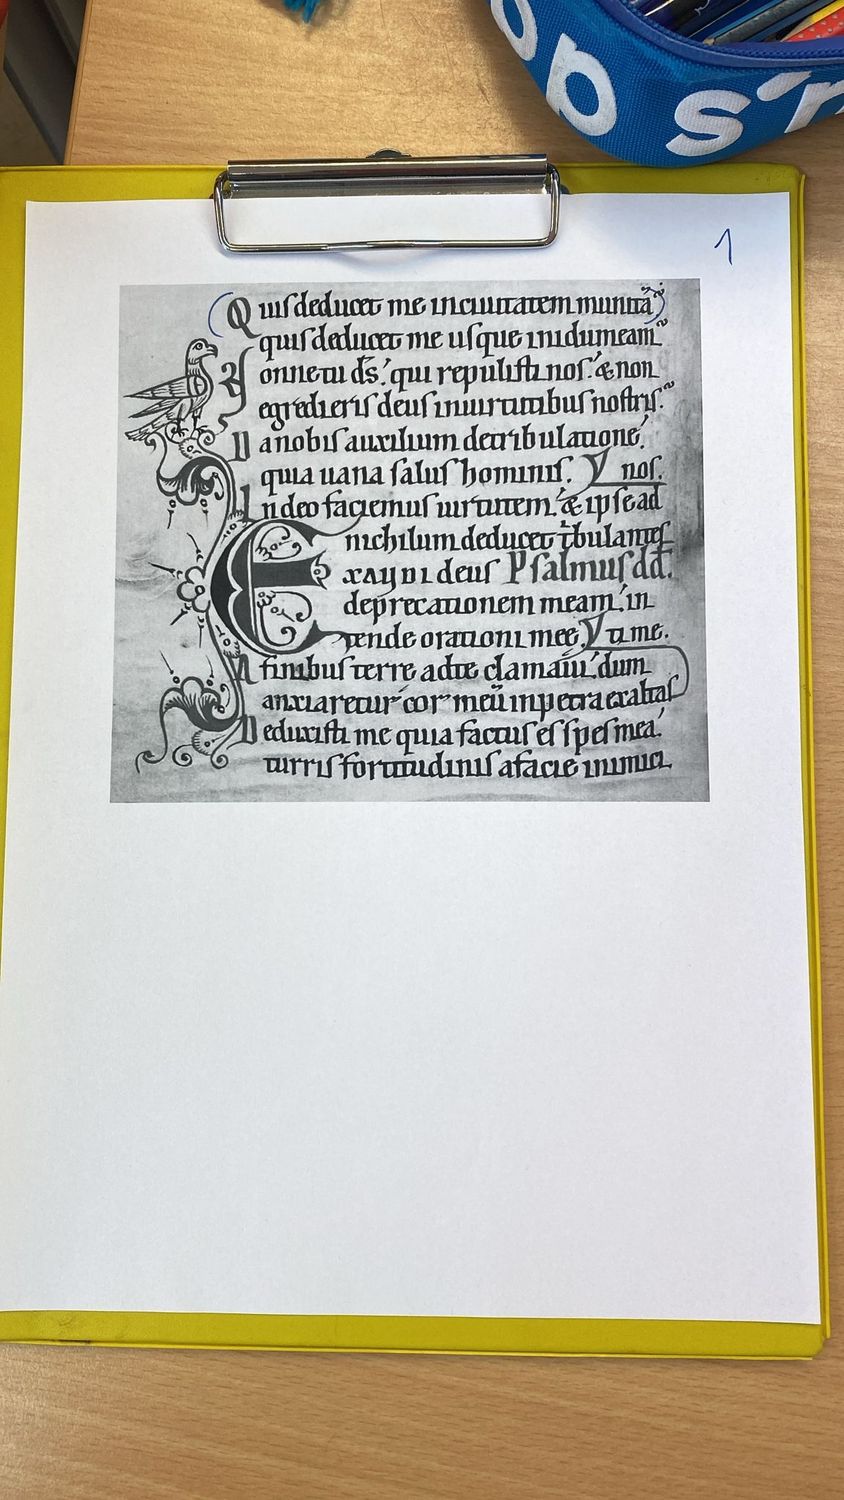 op s'r
1
Quis deducet me inciuitatem munitā
quis deducet me usque inidumeam
Nonne tu ds̄ qui repulisti nos. & non
egredieris deus inuirtutibus nostris.
Da nobis auxilium detribulatione.
quia uana salus hominis. nos.
In deo faciemus uirtutem. & ipse ad
nichilum deducet tribulantes
Exaudi deus Psalmus dd̄.
deprecationem meam. in
tende orationi mee. me.
A finibus terre adte clamaui. dum
anxiaretur cor meū inpetra exaltas
Deduxisti me quia factus es spes mea.
turris fortitudinis afacie inimici